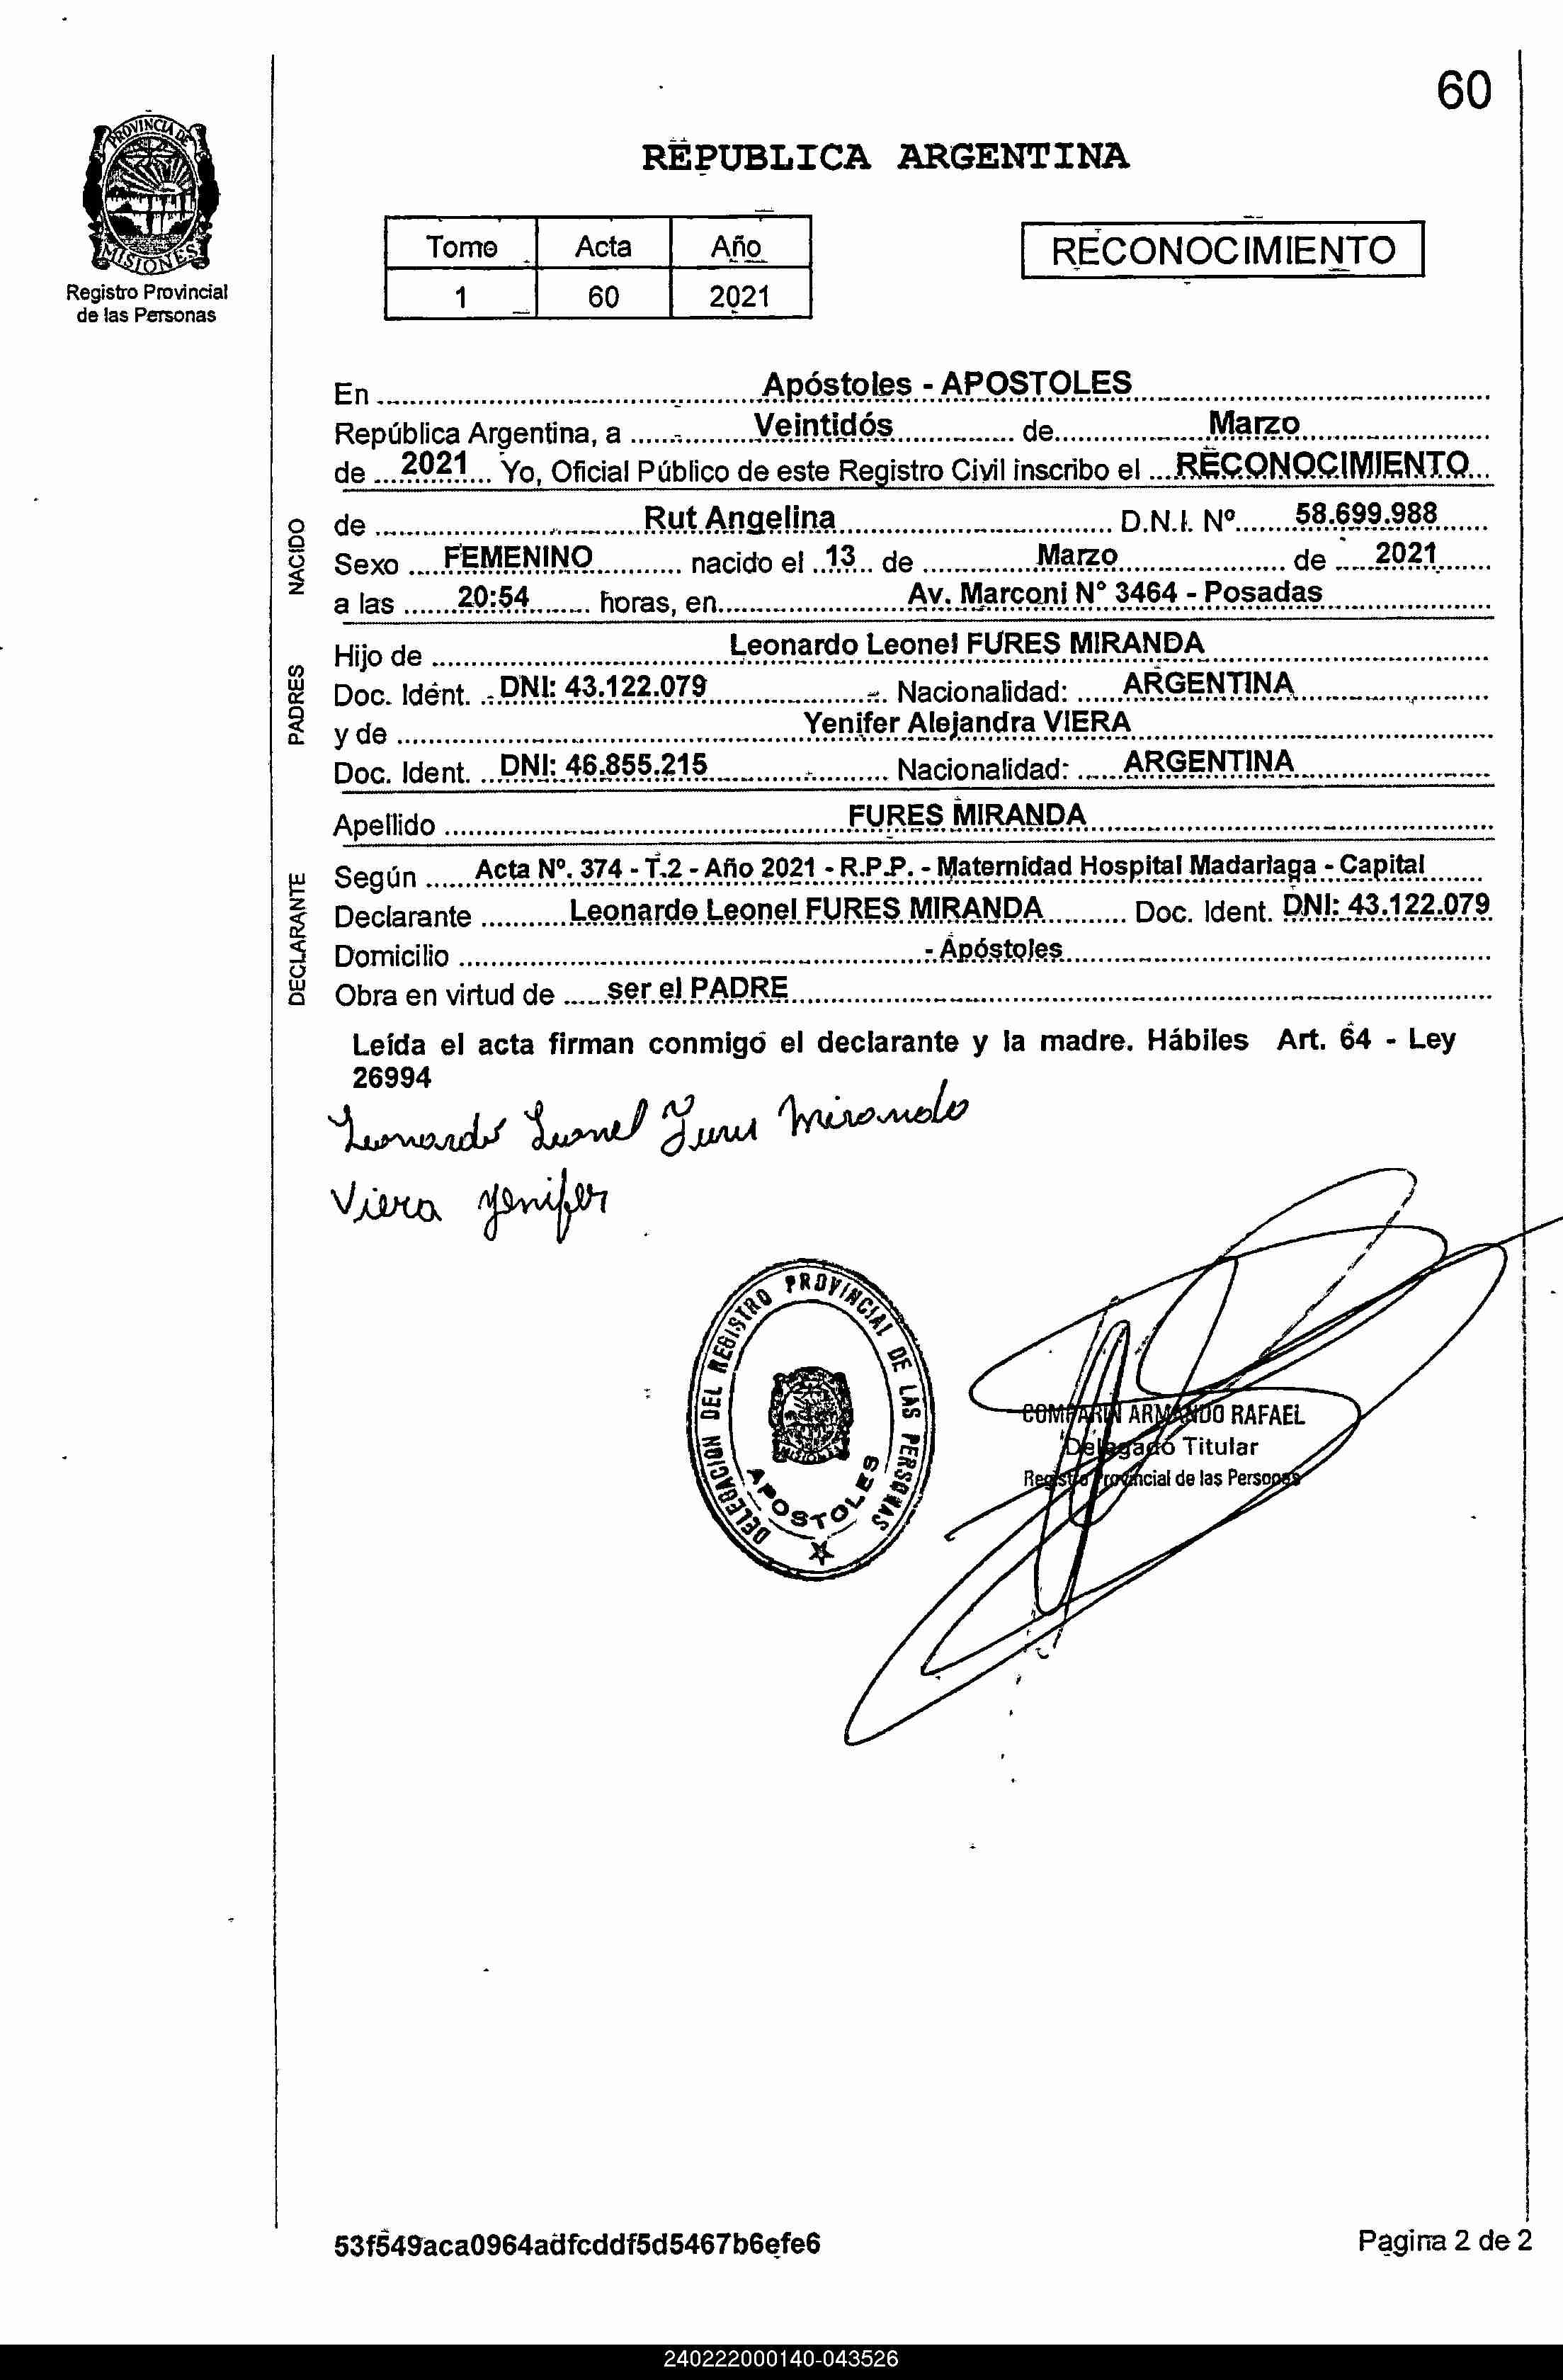 60
PROVINCIA DE
MISIONES
Registro Provincial
de las Personas
REPUBLICA ARGENTINA
Tomo Acta Año
1 60 2021
RECONOCIMIENTO
En Apóstoles - APOSTOLES
República Argentina, a Veintidós de Marzo
de 2021 Yo, Oficial Público de este Registro Civil inscribo el RECONOCIMIENTO
NACIDO
de Rut Angelina D.N.I. Nº 58.699.988
Sexo FEMENINO nacido el 13 de Marzo de 2021
a las 20:54 horas, en Av. Marconi N° 3464 - Posadas
PADRES
Hijo de Leonardo Leonel FURES MIRANDA
Doc. Ident. DNI: 43.122.079 Nacionalidad: ARGENTINA
y de Yenifer Alejandra VIERA
Doc. Ident. DNI: 46.855.215 Nacionalidad: ARGENTINA
Apellido FURES MIRANDA
DECLARANTE
Según Acta Nº. 374 - T.2 - Año 2021 - R.P.P. - Maternidad Hospital Madariaga - Capital
Declarante Leonardo Leonel FURES MIRANDA Doc. Ident. DNI: 43.122.079
Domicilio - Apóstoles
Obra en virtud de ser el PADRE
Leída el acta firman conmigo el declarante y la madre. Hábiles Art. 64 - Ley
26994
Leonardo Leonel Fures Miranda
Viera Yenifer
DELEGACION DEL REGISTRO PROVINCIAL DE LAS PERSONAS
MISIONES
APOSTOLES
COMPARIN ARMANDO RAFAEL
Delegado Titular
Registro Provincial de las Personas
53f549aca0964adfcddf5d5467b6efe6
Pagina 2 de 2
240222000140-043526